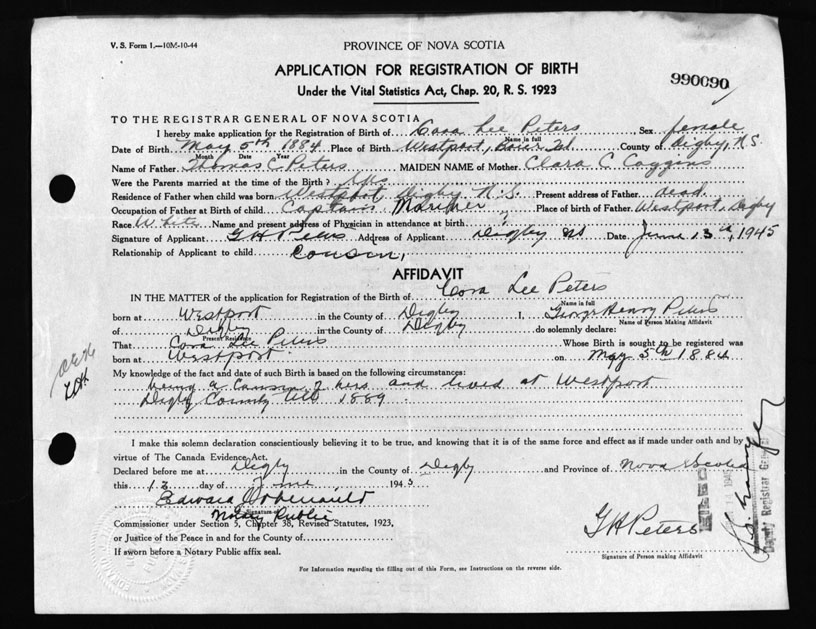 V. S. Form 1.—10M-10-44
PROVINCE OF NOVA SCOTIA
APPLICATION FOR REGISTRATION OF BIRTH
990090
Under the Vital Statistics Act, Chap. 20, R. S. 1923
TO THE REGISTRAR GENERAL OF NOVA SCOTIA
I hereby make application for the Registration of Birth of Cora Lee Peters, Sex female
Name in full
Date of Birth May 5th 1884 Place of Birth Westport, County of Digby, N.S.
Month Date Year
Name of Father Thomas C Peters MAIDEN NAME of Mother Clara C Coggins
Were the Parents married at the time of the Birth? yes
Residence of Father when child was born Westport Digby N.S. Present address of Father dead.
Occupation of Father at Birth of child Captain, Mariner Place of birth of Father Westport, Digby
Race White Name and present address of Physician in attendance at birth
Signature of Applicant G H Peters Address of Applicant Digby NS Date June 13th, 1945
Relationship of Applicant to child cousin,
AFFIDAVIT
IN THE MATTER of the application for Registration of the Birth of Cora Lee Peters
Name in full
born at Westport in the County of Digby I, George Henry Peters
Name of Person Making Affidavit
of Digby in the County of Digby do solemnly declare:
Present Residence
That Cora Lee Peters Whose Birth is sought to be registered was
born at Westport on May 5th 1884
My knowledge of the fact and date of such Birth is based on the following circumstances:
being a Cousin of hers and lived at Westport
Digby County till 1889.
I make this solemn declaration conscientiously believing it to be true, and knowing that it is of the same force and effect as if made under oath and by
virtue of The Canada Evidence Act.
Declared before me at Digby in the County of Digby and Province of Nova Scotia
this 13 day of June 1945
Edward
Signature of
Notary Public
Commissioner under Section 5, Chapter 38, Revised Statutes, 1923,
or Justice of the Peace in and for the County of
If sworn before a Notary Public affix seal.
G H Peters
Signature of Person making Affidavit
For Information regarding the filling out of this Form, see Instructions on the reverse side.
FILED
Deputy Registrar General